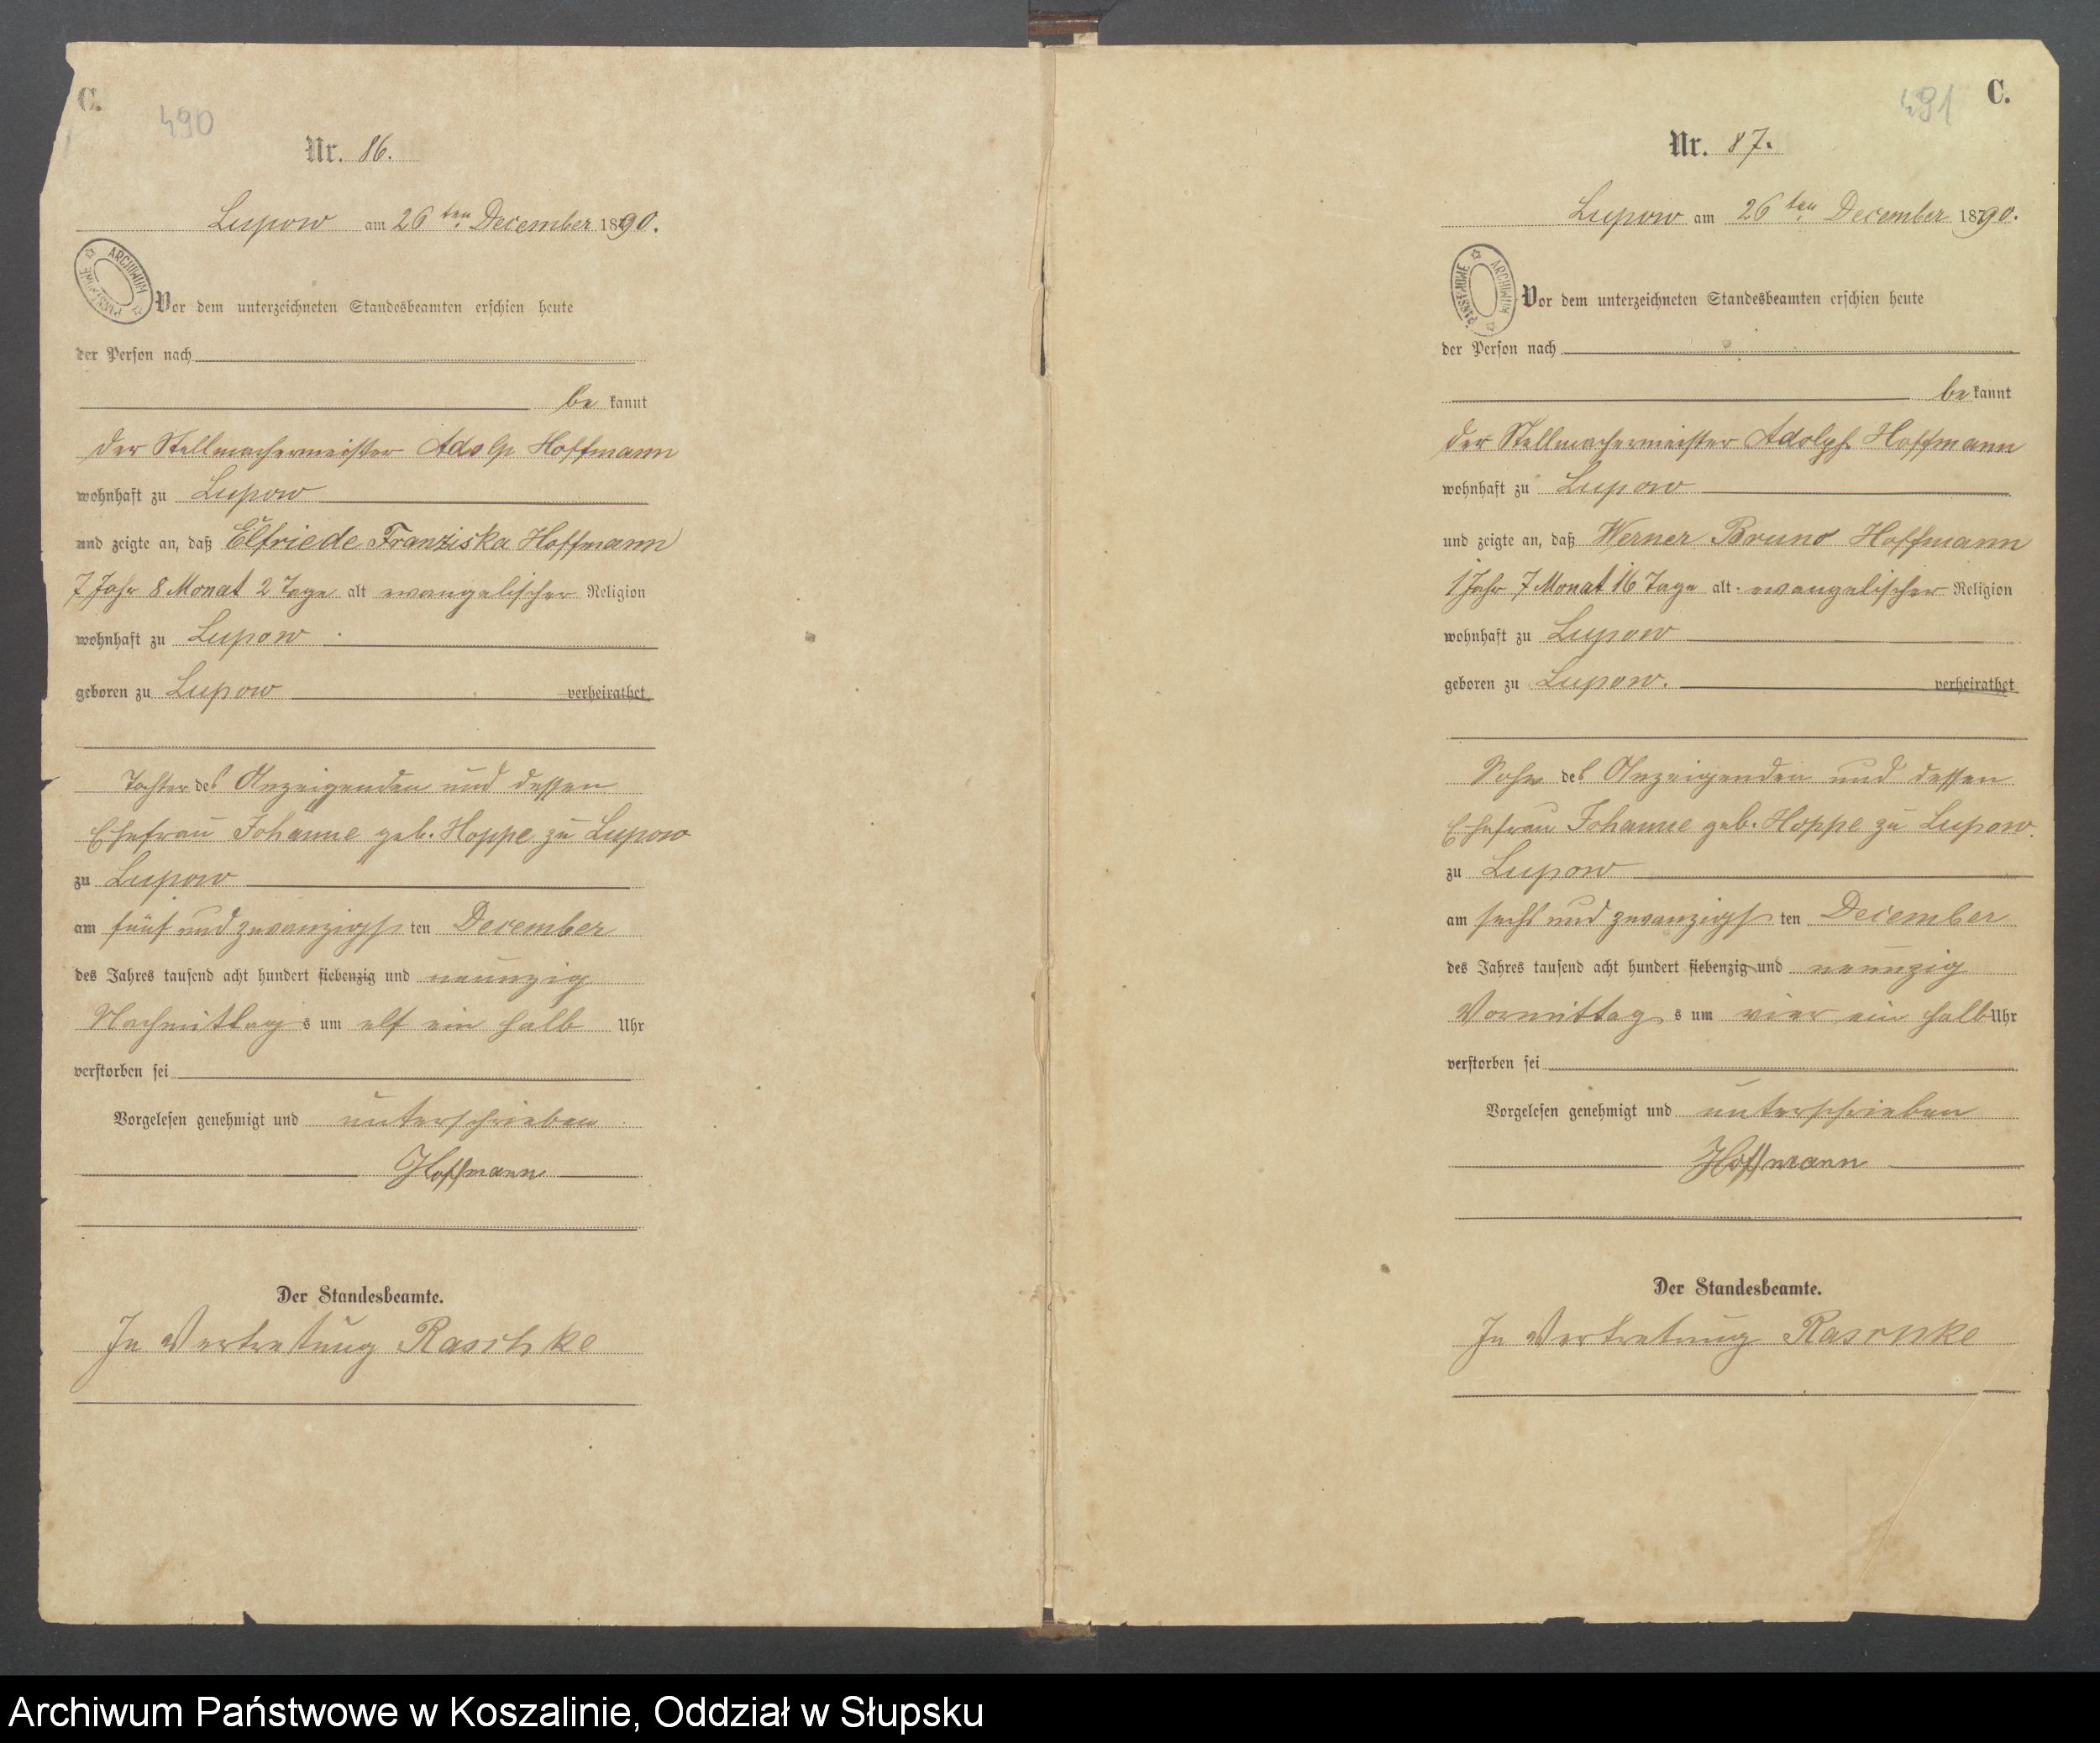 C.
490
Nr. 86.
Lupow am 26ten December 1890.
ARCHIWUM PAŃSTWOWE
Vor dem unterzeichneten Standesbeamten erschien heute
der Person nach
be kannt
der Stellmachermeister Adolp Hoffmann
wohnhaft zu Lupow
und zeigte an, daß Elfriede Franziska Hoffmann
7 Jahr 8 Monat 2 Tage alt evangelischer Religion
wohnhaft zu Lupow
geboren zu Lupow verheirathet
Tochter des Anzeigenden und dessen
Ehefrau Johanne geb. Hoppe zu Lupow
zu Lupow
am fünf und zwanzigsten December
des Jahres tausend acht hundert siebenzig und neunzig
Nachmittags um elf ein halb Uhr
verstorben sei
Vorgelesen genehmigt und unterschrieben
Hoffmann
Der Standesbeamte.
In Vertretung Raschke
491
C.
Nr. 87.
Lupow am 26ten December 1890.
ARCHIWUM PAŃSTWOWE
Vor dem unterzeichneten Standesbeamten erschien heute
der Person nach
be kannt
der Stellmachermeister Adolph Hoffmann
wohnhaft zu Lupow
und zeigte an, daß Werner Bruno Hoffmann
1 Jahr 7 Monat 16 Tage alt evangelischer Religion
wohnhaft zu Lupow
geboren zu Lupow. verheirathet
Sohn des Anzeigenden und dessen
Ehefrau Johanne geb. Hoppe zu Lupow.
zu Lupow
am sechs und zwanzigsten December
des Jahres tausend acht hundert siebenzig und neunzig
Vormittags um vier ein halb Uhr
verstorben sei
Vorgelesen genehmigt und unterschrieben
Hoffmann
Der Standesbeamte.
In Vertretung Raschke
Archiwum Państwowe w Koszalinie, Oddział w Słupsku